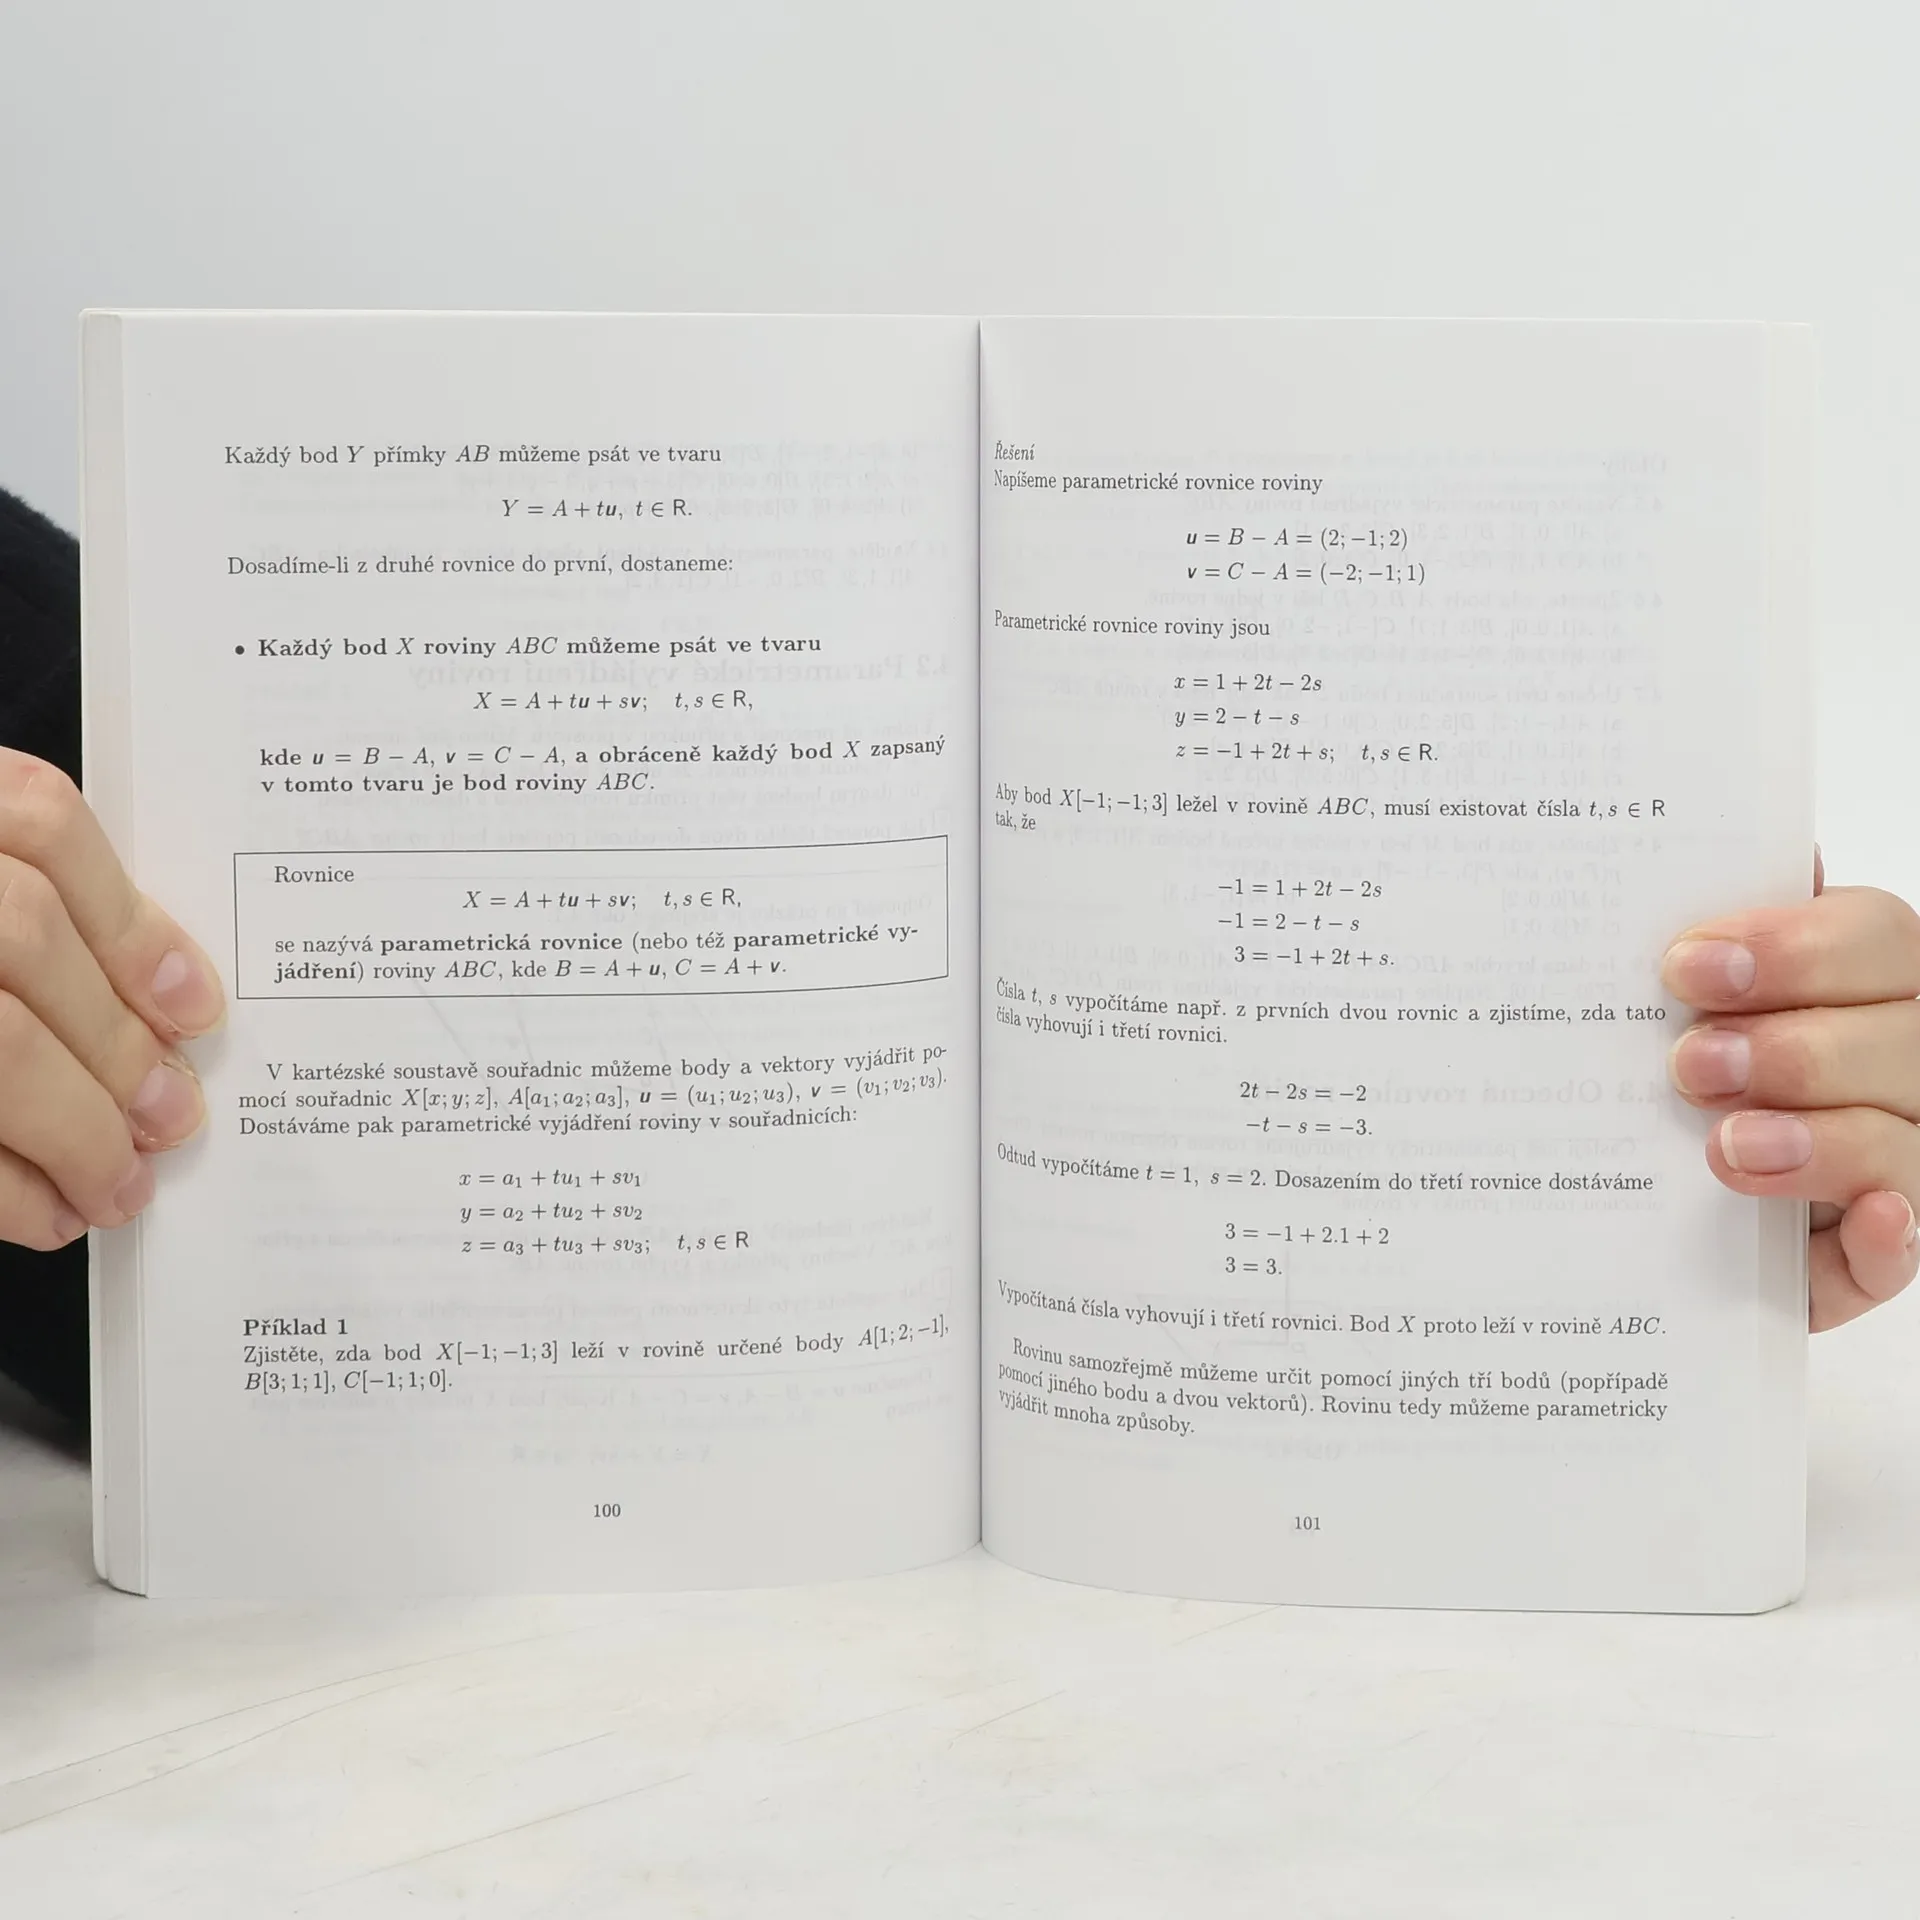 Každý bod Y přímky AB můžeme psát ve tvaru
Y = A + tu, t ∈ R.
Dosadíme-li z druhé rovnice do první, dostaneme:
• Každý bod X roviny ABC můžeme psát ve tvaru
X = A + tu + sv; t, s ∈ R,
kde u = B − A, v = C − A, a obráceně každý bod X zapsaný
v tomto tvaru je bod roviny ABC.
Rovnice
X = A + tu + sv; t, s ∈ R,
se nazývá parametrická rovnice (nebo též parametrické vy-
jádření) roviny ABC, kde B = A + u, C = A + v.
V kartézské soustavě souřadnic můžeme body a vektory vyjádřit po-
mocí souřadnic X[x; y; z], A[a₁; a₂; a₃], u = (u₁; u₂; u₃), v = (v₁; v₂; v₃).
Dostáváme pak parametrické vyjádření roviny v souřadnicích:
x = a₁ + tu₁ + sv₁
y = a₂ + tu₂ + sv₂
z = a₃ + tu₃ + sv₃; t, s ∈ R
Příklad 1
Zjistěte, zda bod X[−1; −1; 3] leží v rovině určené body A[1; 2; −1],
B[3; 1; 1], C[−1; 1; 0].
100
Řešení
Napíšeme parametrické rovnice roviny
u = B − A = (2; −1; 2)
v = C − A = (−2; −1; 1)
Parametrické rovnice roviny jsou
x = 1 + 2t − 2s
y = 2 − t − s
z = −1 + 2t + s; t, s ∈ R.
Aby bod X[−1; −1; 3] ležel v rovině ABC, musí existovat čísla t, s ∈ R
tak, že
−1 = 1 + 2t − 2s
−1 = 2 − t − s
3 = −1 + 2t + s.
Čísla t, s vypočítáme např. z prvních dvou rovnic a zjistíme, zda tato
čísla vyhovují i třetí rovnici.
2t − 2s = −2
−t − s = −3.
Odtud vypočítáme t = 1, s = 2. Dosazením do třetí rovnice dostáváme
3 = −1 + 2.1 + 2
3 = 3.
Vypočítaná čísla vyhovují i třetí rovnici. Bod X proto leží v rovině ABC.
Rovinu samozřejmě můžeme určit pomocí jiných tří bodů (popřípadě
pomocí jiného bodu a dvou vektorů). Rovinu tedy můžeme parametricky
vyjádřit mnoha způsoby.
101